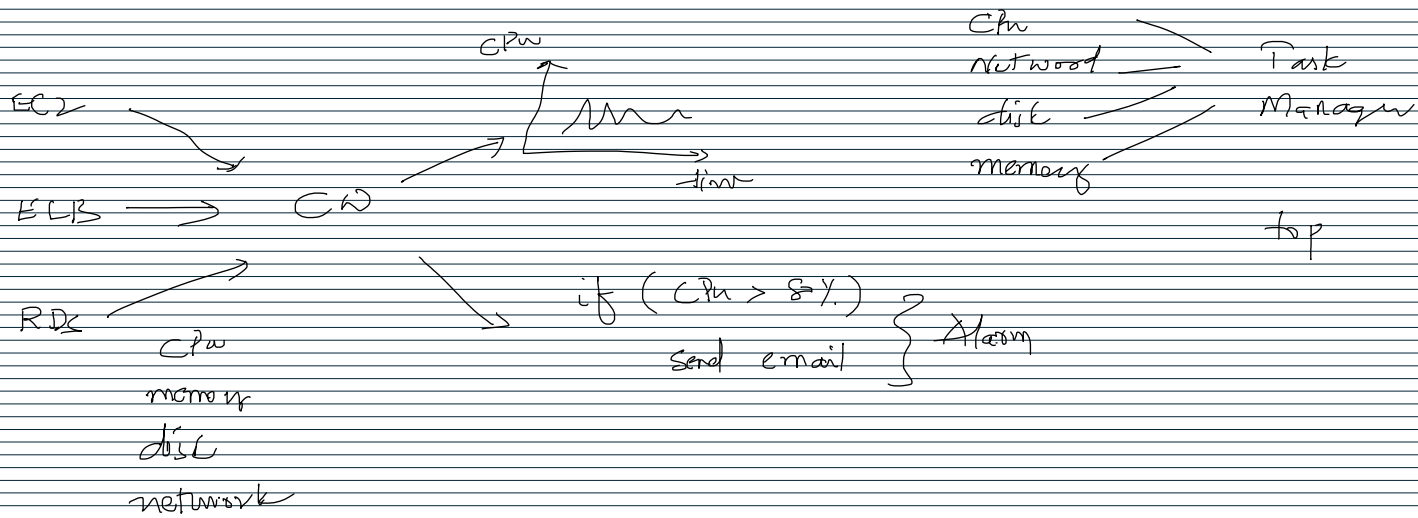 EC2
ELB
RDS
CPU
memory
disc
network
CW
CPU
time
if (CPU > 80%)
send email
Alarm
CPU
Network
disk
memory
Task
Manager
top